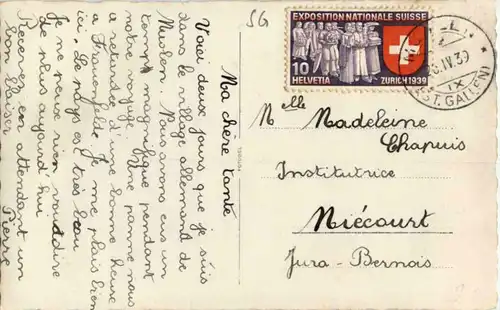 Ma chère tante
Voici deux jours que je suis
dans le village allemand de
Nuolen. Nous avons eus un
temps magnifique pendant
notre voyage. Une panne nous
a retardée d'une bonne heure
a Frauenfeld. Je me plais bien
ici. Le pays est très beau
je ne peux rien vous dire
de plus aujourd'hui
Recevez en attendant un
bon baiser
Pierre
56
EXPOSITION NATIONALE SUISSE
10
HELVETIA ZURICH 1939
.IV.39
IX
(ST. GALLEN)
Melle Madeleine
Chapuis
Institutrice
Miécourt
Jura-Bernois